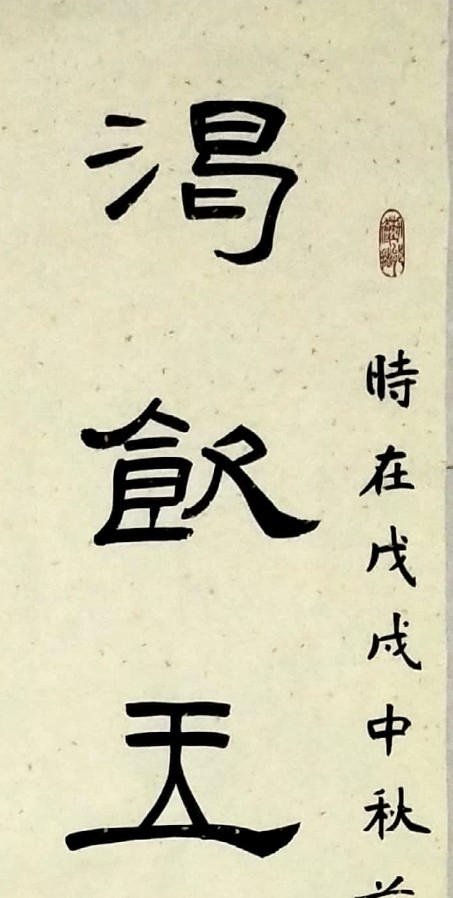 時在戊戌中秋
渴飲玉